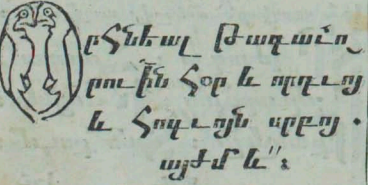 Օրհնեալ Թագաւո֊
րուի՟ն Հօր և որդւոյ
և Հոգւոյն սրբոյ .
այժմ և՟ ։